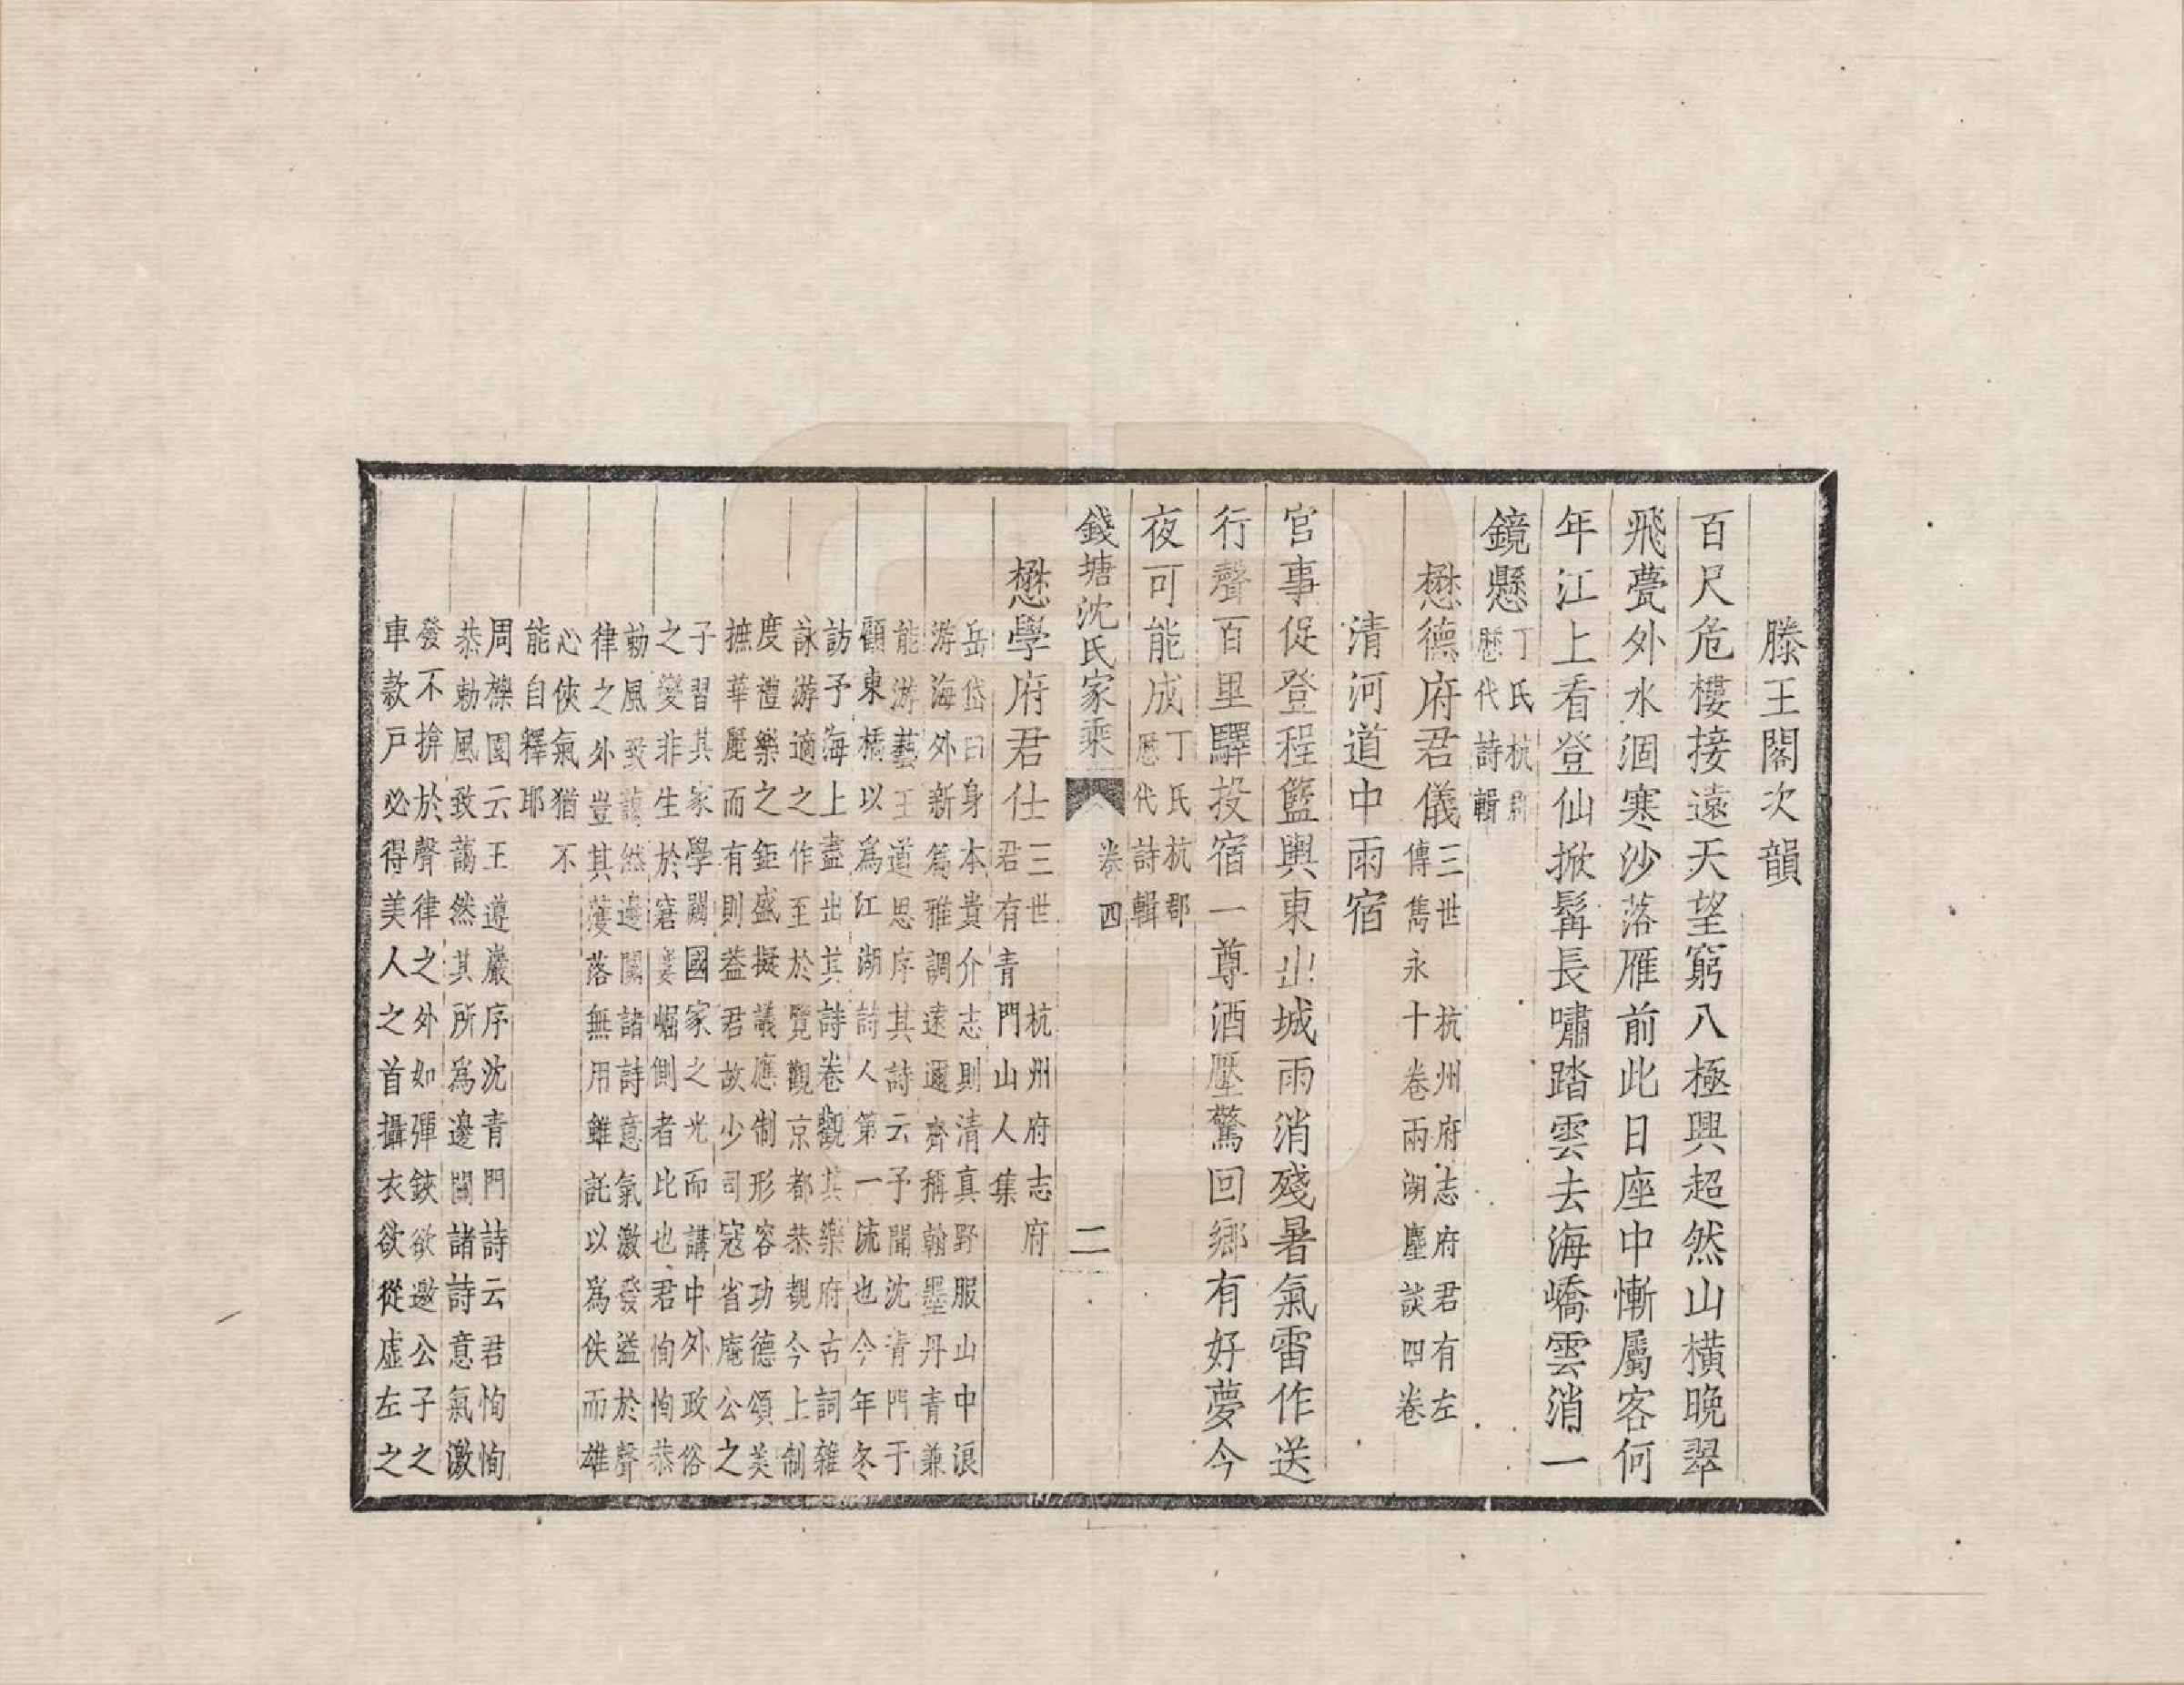 滕王閣次韻
百尺危樓接遠天望窮八極興超然山橫晚翠
飛甍外水涸寒沙落雁前此日座中慚屬客何
年江上看登仙掀髯長嘯踏雲去海嶠雲消一
鏡懸丁氏杭郡
歷代詩輯
懋德府君儀三世 杭州府志府君有左
傳雋永十卷兩湖麈談四卷
清河道中雨宿
官事促登程籃輿東出城雨消殘暑氣雷作送
行聲百里驛投宿一尊酒壓驚回鄉有好夢今
夜可能成丁氏杭郡
歷代詩輯
錢塘沈氏家乘 卷四 二
懋學府君仕三世 杭州府志 府
君有青門山人集
岳岱曰身本貴介志則清真野服山中浪
游海外新篇雅調遠邇齊稱翰墨丹青兼
能游藝王道思序其詩云予聞沈青門于
顧東橋以為江湖詩人第一流也今年冬
訪予海上盡出其詩卷觀其樂府古詞雜
詠游適之作至於覽觀京都恭覩今上制
度禮樂之鉅盛擬議應制形容功德頌美
摭華麗而有則蓋君故少司寇省庵公之
子習其家學閑國家之光而講中外政俗
之變非生於窘窶崛側者比也君恂恂恭
勅風致藹然邊關諸詩意氣激發溢於聲
律之外豈其濩落無用雖託以為佚而雄
心俠氣猶不
能自釋耶
周櫟園云王遵巖序沈青門詩云君恂恂
恭勅風致藹然其所為邊關諸詩意氣激
發不揜於聲律之外如彈鋏欲邀公子之
車款戶必得美人之首攝衣欲從虛左之